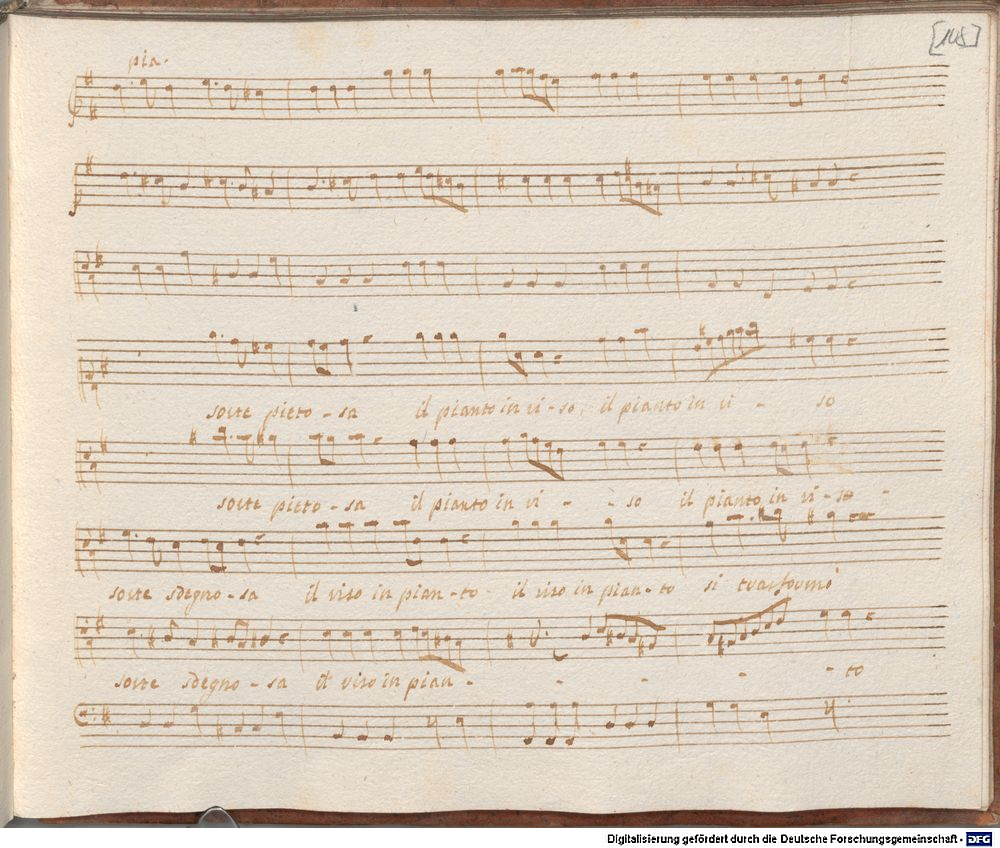 [108]
pia.
sorte pieto - sa il pianto in vi - so, il pianto in vi - so
sorte pieto - sa il pianto in vi - - so il pianto in vi - so -
sorte sdegno - sa il viso in pian - to il viso in pian - to si trasformò
sorte sdegno - sa il viso in pian - - - - - to
Digitalisierung gefördert durch die Deutsche Forschungsgemeinschaft - DFG